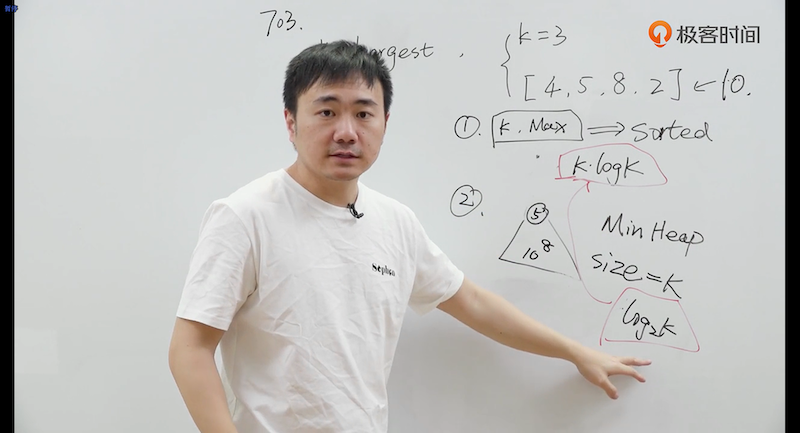 703.
largest. { k = 3
[4, 5, 8, 2] ← 10.
极客时间
①. k. Max ⟹ sorted
k·logk
②. 5
10 8
Min Heap
size = k
log₂k